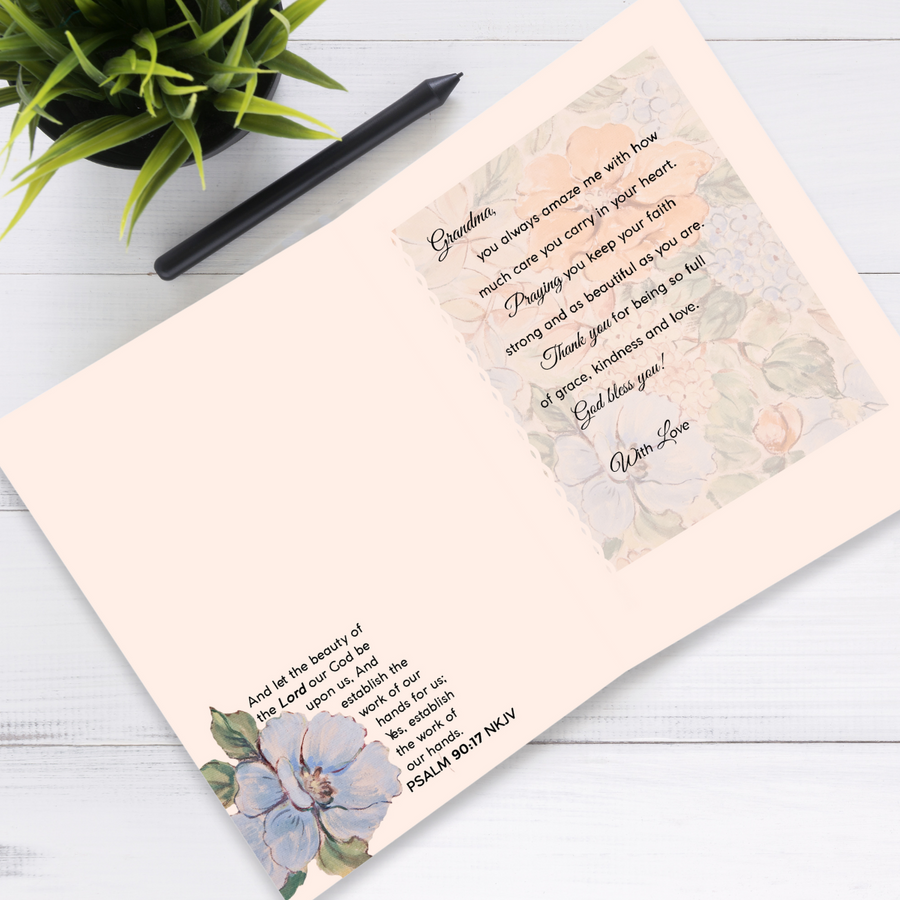 And let the beauty of
the Lord our God be
upon us, And
establish the
work of our
hands for us;
Yes, establish
the work of
our hands.
PSALM 90:17 NKJV
Grandma,
you always amaze me with how
much care you carry in your heart.
Praying you keep your faith
strong and as beautiful as you are.
Thank you for being so full
of grace, kindness and love.
God bless you!
With Love